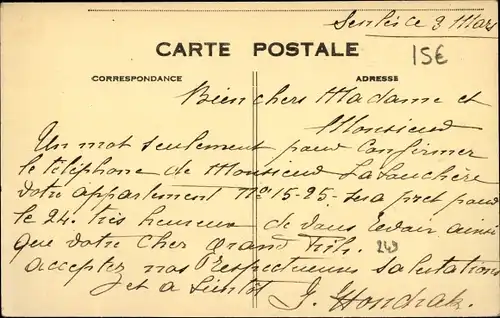 Senlis ce 3 Mars
CARTE POSTALE
15€
CORRESPONDANCE
ADRESSE
Bien chers Madame et
Monsieur
Un mot seulement pour Confirmer
le téléphone de Monsieur Lalouchère
votre appartement No 15-25- sera pret pour
le 24. très heureux de vous revoir ainsi
que votre Cher Grand Fils.
249
acceptez nos Respectueuses Salutations
et a bientôt